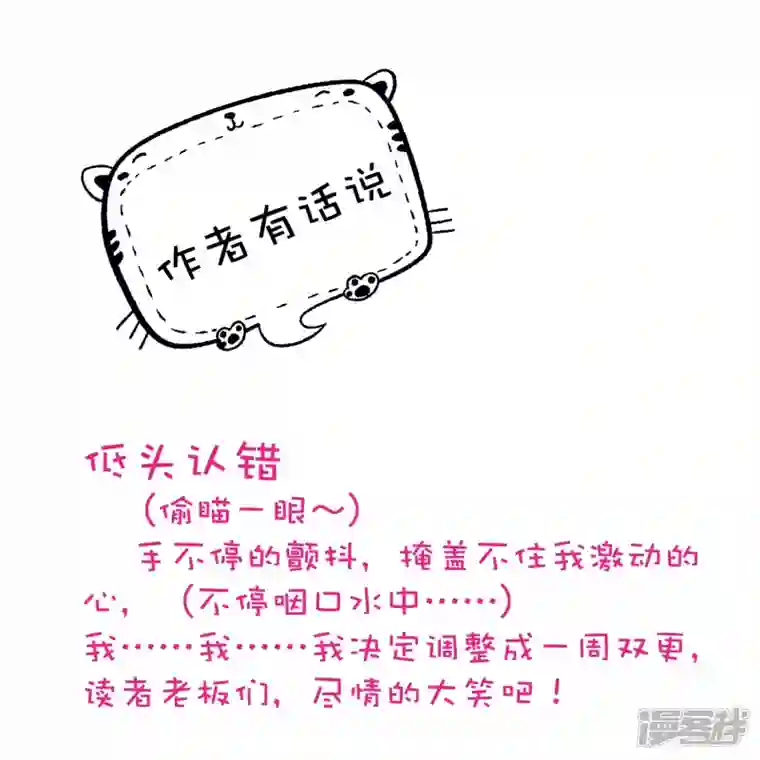 作者有话说
低头认错
（偷瞄一眼～）
手不停的颤抖，掩盖不住我激动的
心，（不停咽口水中……）
我……我……我决定调整成一周双更，
读者老板们，尽情的大笑吧！
漫客栈